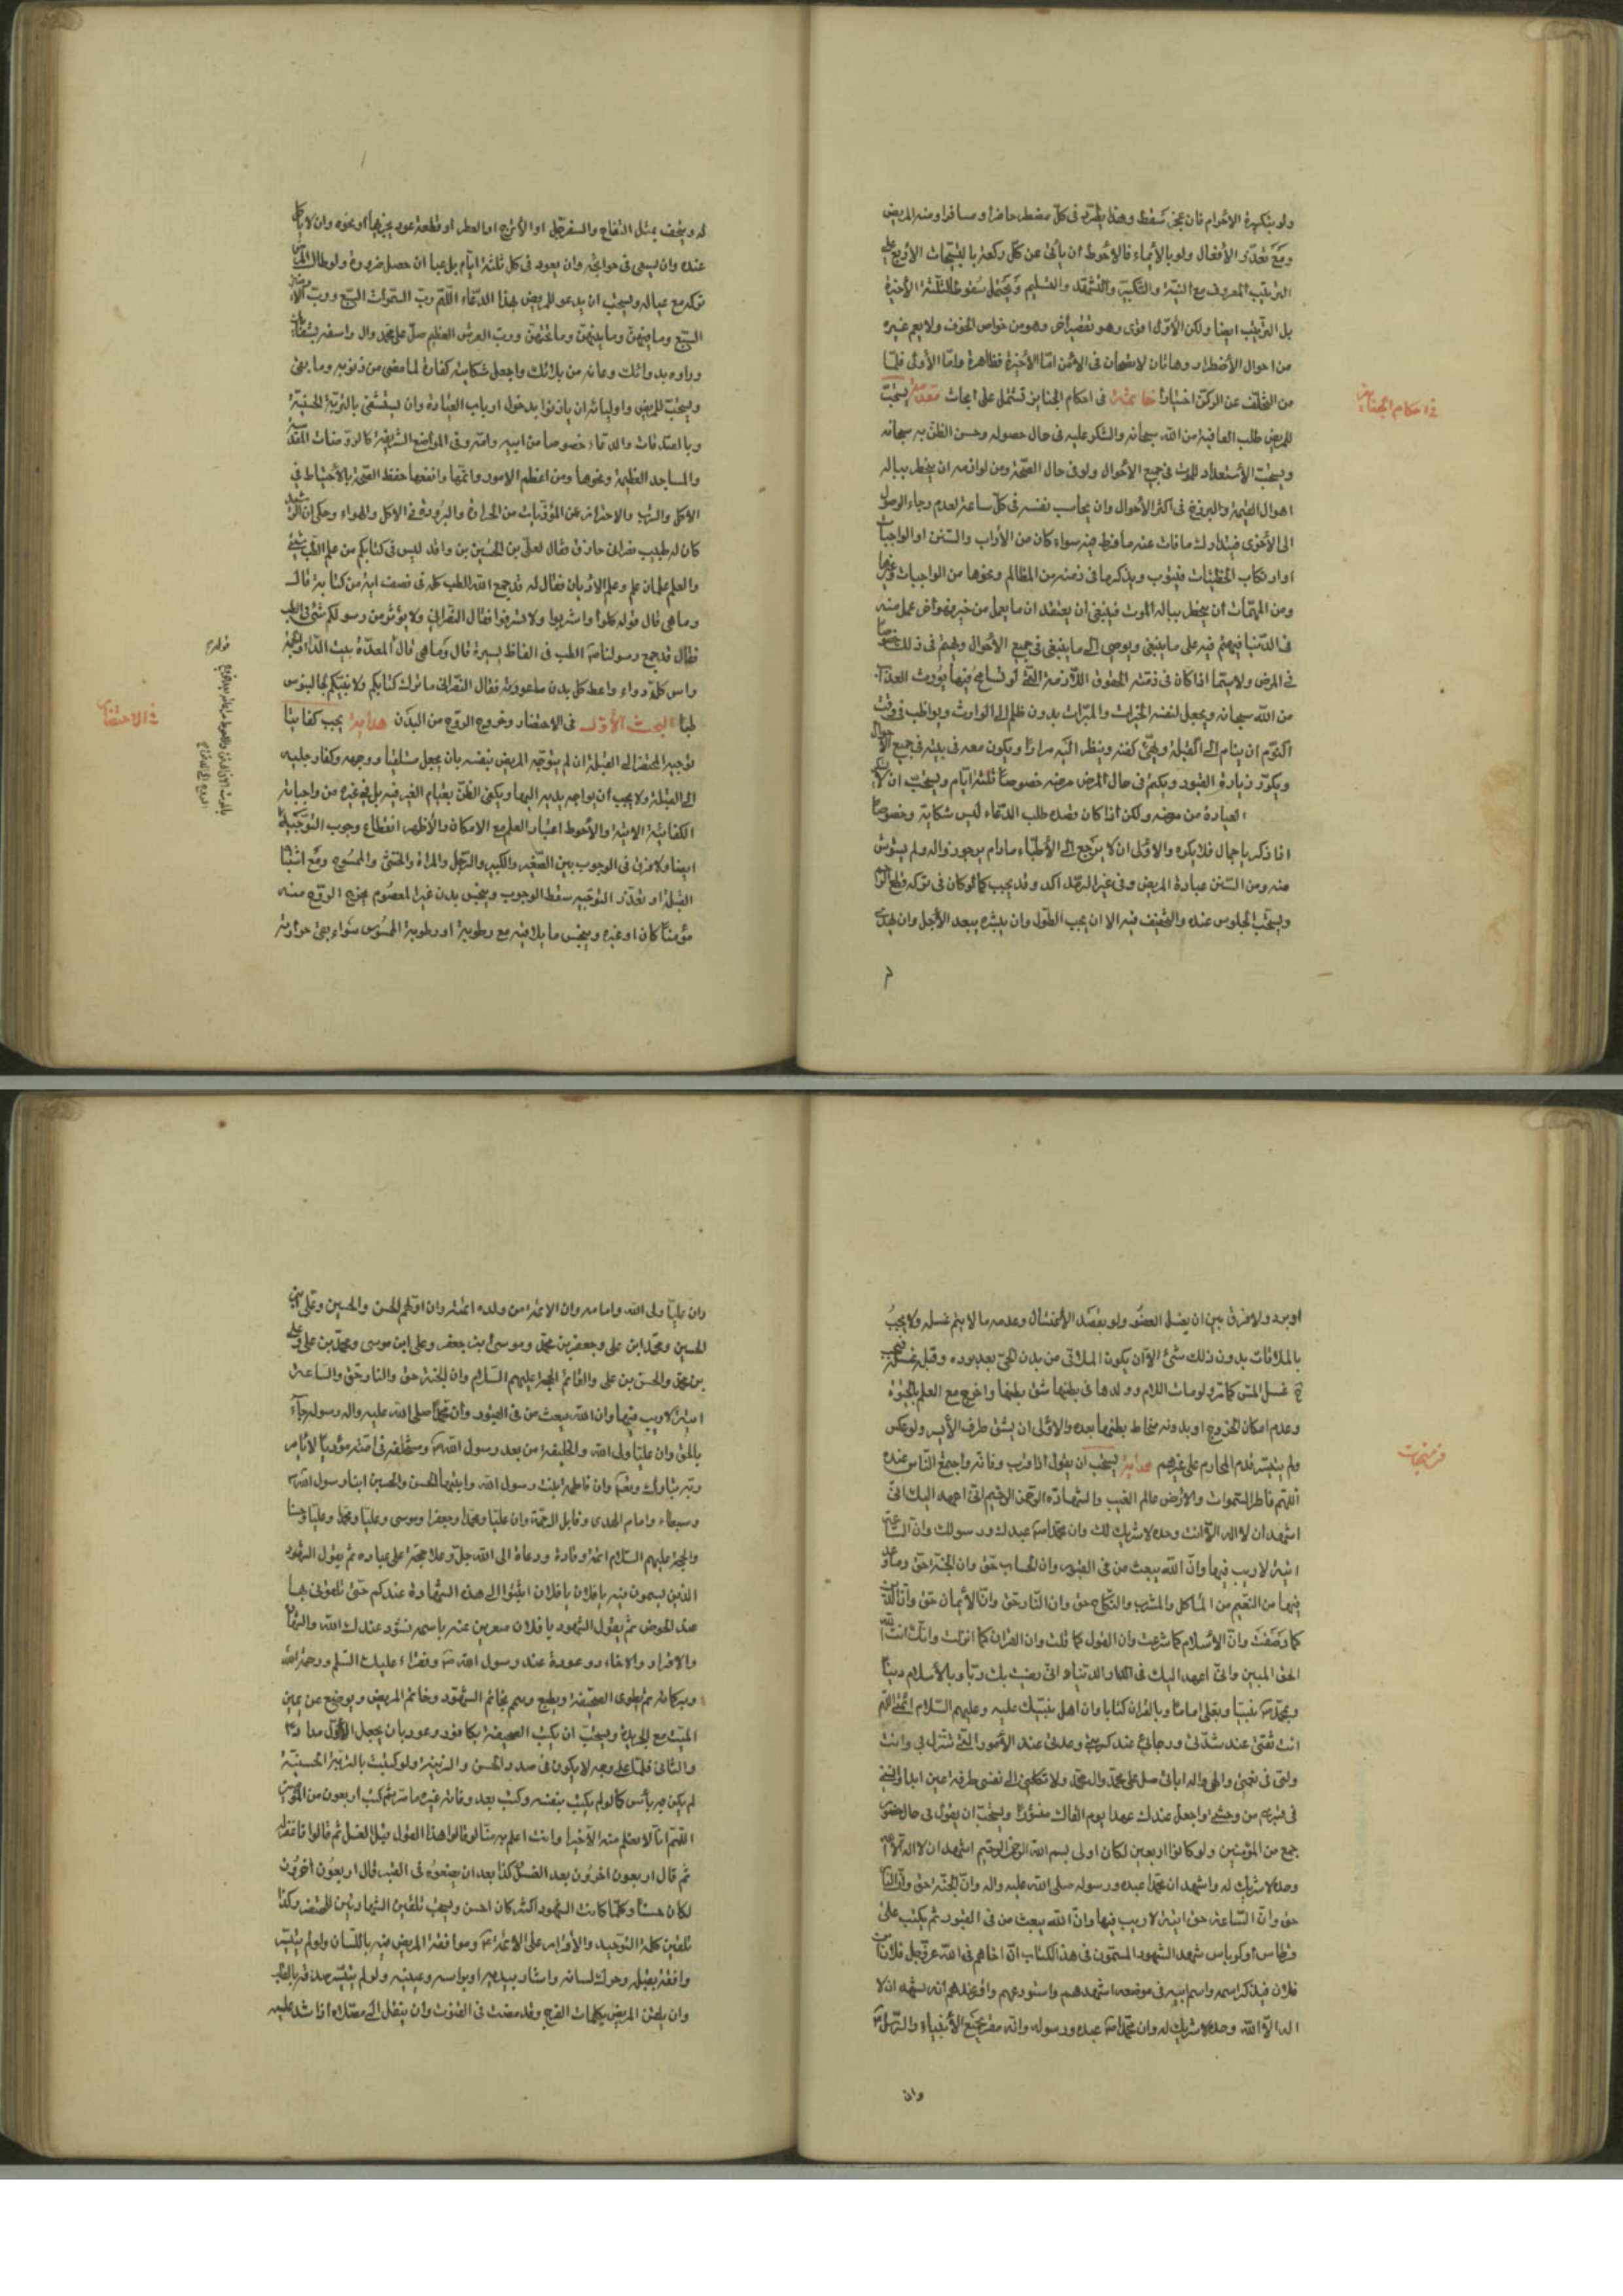 ولو بتكبيرة الاحرام فان عجز سقط وهذا يطرد في كل مضطر حاضرا ومسافرا ومنه المريض
ومع تعذر الأفعال ولو بالأيماء فالاحوط أن يأتي عن كل ركعة بالتسبيحات الأربع على
الترتيب المعروف مع النية والتكبيرة والتشهد والتسليم ويحتمل سقوط الثلثة الأخيرة
بل الترتيب ايضا ولكن الأول اقوى وهو تقصير اخر وهو من خواص الخوف ولا يعم غيره
من احوال الأضطرار وهاتان لا تقعان في الامن اما الأخيرة فظاهرة واما الأولى فلما
من التخلف عن الركن اختيارا خاتمة في احكام الجنايز تشتمل على ابحاث مقدمة يستحب
في احكام الجنايز
للمريض طلب العافية من الله سبحانه والشكر عليه في حال حصوله وحسن الظن به سبحانه
ويستحب الأستعداد للموت في جميع الأحوال ولو في حال الصحة ومن لوازمه ان يخطر بباله
اهوال القيمة والبرزخ في اكثر الأحوال وان يحاسب نفسه في كل ساعة لعدم رجاء الوصول
الى الأخرى فيتدارك ما فات عنه ما فرط فيه سواء كان من الآداب والسنن او الواجبات
او ارتكاب الخطيئات فيتوب ويذكر ما في ذمته من المظالم ونحوها من الواجبات وغيرها
ومن المهمات أن يخطر بباله الموت فينبغي ان يعتقد ان ما يعمل من خير فهو آخر عمل منه
في الدنيا فيهتم فيه على ما ينبغي ويوصي الى ما ينبغي في جميع الأحوال ويهتم في ذلك خصوصا
في المرض ولا سيما اذا كان في ذمته الحقوق اللازمة التي لو تسامح فيها يورث العذاب
من الله سبحانه ويجعل لنفسه الخيرات والمبرات بدون ظلم الى الوارث ويواظب في وقت
النوم ان ينام الى القبلة ويهيئ كفنه وينظر اليه مرارا ويكون معه في بيته في جميع الأحوال
ويكرر زيارة القبور ويكتم في حال المرض مرضه خصوصا ثلثة ايام ويستحب ان لا
العيادة من مرضه ولكن اذا كان قصده طلب الدعاء ليس شكاية وخصوصا
اذا ذكر بإجمال فلا يكره والاولى ان لا يرجع الى الأطباء مادام يرجو زواله ولم يشوش
منه ومن السنن عيادة المريض وفي غير الرمد آكد وقد يجب كما لو كان في تركه قطع الرحم
ويستحب الجلوس عنده والتخفيف فيه الا ان يحب الطول وان يبشره ببعد الأجل وان يهدى
له ويتحف بمثل التفاح والسفرجل او الأترج او العطر او قطعة عود يتجمر بها او نحوه وان لا يأكل
عنده وان يسعى في حوائجه وان يعود في كل ثلثة ايام بل غبا ان حصل ضرورة ولو طال المرض
تركه مع عياله ويستحب ان يدعو للمريض بهذا الدعاء اللهم رب السموات السبع ورب الأرضين
السبع وما فيهن وما بينهن وما تحتهن ورب العرش العظيم صل على محمد وآل واشفه بشفائك
وداوه بدوائك وعافه من بلائك واجعل شكايته كفارة لما مضى من ذنوبه وما بقى
ويستحب للمريض واوليائه ان ياذنوا بدخول ارباب العيادة وان يستشفى بالتربة الحسينية
وبالصدقات والدعاء خصوصا من ابيه وامه وفي المواضع الشريفة كالروضات المقدسة
والمساجد العظيمة ونحوها ومن اعظم الامور واتمها وانفعها حفظ الصحة بالأحتياط في
الأكل والشرب والاحتراز عن المؤذيات من الحرارة والبرودة في الاكل والهواء وحكى ان الرشيد
كان له طبيب نصراني حاذق فقال لعلى بن الحسين بن واقد ليس في كتابكم من علم الطب شيء
والعلم علمان علم وعلم الاديان فقال له قد جمع الله الطب كله في نصف اية من كتابه قال
وما هي قال قوله كلوا واشربوا ولا تسرفوا فقال النصراني ولا يؤثر من رسولكم شيء في الطب
فقال قد جمع رسولنا ص الطب في الفاظ يسيرة قال وما هي قال المعدة بيت الداء والحمية
راس كل دواء واعط كل بدن ما عودته فقال النصراني ما ترك كتابكم ولا نبيكم لجالينوس
طبا البحث الأول في الاحتضار وخروج الروح من البدن هداية يجب كفايتا
في الاحتضار
توجيه المحتضر الى القبلة ان لم يتوجه المريض بنفسه بان يجعل مستلقيا ووجهه وكفا رجليه
الى القبلة ولا يجب أن يواجهه بيديه اليها ويكفى الظن بقيام الغير فيه بل في غيره من واجباته
الكفائية الاتية والأحوط اعتبار العلم مع الامكان والأظهر انقطاع وجوب التوجيه
ايضا ولا فرق في الوجوب بين الصغير والكبير والرجل والمرأة والخنثى والممسوح ومع اشتباه
القبلة او تعذر التوجيه سقط الوجوب وينجس بدن غير المعصوم بخروج الروح منه
مؤمنا كان او غيره وينجس ما يلاقيه مع رطوبة او رطوبة الممسوس سواء بقى حرارته
او برد ولا فرق بين ان يغسل العضو ولو بقصد الأغتسال وعدمه ما لا يتم غسله ولا يجب
بالملاقات بدون ذلك شيء الا أن يكون الملاقي من بدن الحي بعد برده وقبل غسله فيجب
ح غسل المس كما مر ولو مات اللام وولدها في بطنها شق بطنها واخرج مع العلم بالحيوة
وعدم امكان الخروج او بدونه يخاط بطنها بعده والاولى ان يشق طرف الأيسر ولو عكس
ولم يتيسر قدم المحارم على غيرهم هداية يستحب ان يقول اذا قرب وفاته واجتمع الناس عنده
اللهم فاطر السموات والأرض عالم الغيب والشهادة الرحمن الرحيم اني اعهد اليك انى
اشهد ان لا اله الا انت وحده لا شريك لك وان محمدا ص عبدك ورسولك وان الساعة
اتية لا ريب فيها وان الله يبعث من في القبور وان الحساب حق وان الجنة حق وما وعد
فيها من النعيم من المأكل والمشرب والنكاح حق وان النار حق وان الأيمان حق وان الدين
كما وصفت وان الأسلام كما شرعت وان القول كما قلت وان القران كما انزلت وانك انت الله
الحق المبين وانى اعهد اليك في الدار الدنيا انى رضيت بك ربا وبالأسلام دينا
وبمحمد ص نبيا وبعلى اماما وبالقران كتابا وان اهل بيت نبيك عليه وعليهم السلام ائمتي اللهم
انت ثقتى عند شدتي ورجائي عند كربتي وعدتي عند الأمور التي تنزل بى وانت
وليى في نعمتى والهى واله ابائى صل على محمد وال محمد ولا تكلني الى نفسى طرفة عين ابدا وانس
في قبري من وحشتي واجعل عندك عهدا يوم القاك منشورا ويستحب ان يقول في حال حضور
جمع من المؤمنين ولو كانوا اربعين لكان اولى بسم الله الرحمن الرحيم اشهد ان لا اله الا الله
وحده لا شريك له واشهد ان محمدا عبده ورسوله صلى الله عليه واله وان الجنة حق وان النار
حق وان الساعة حق اتية لا ريب فيها وان الله يبعث من في القبور ثم يكتب على
قرطاس او كرباس شهد الشهود المسمون في هذا الكتاب ان اخاهم في الله عز وجل فلان بن
فلان فيذكر اسمه واسم ابيه في موضعه اشهدهم واستودعهم واقر عندهم انه يشهد ان لا
اله الا الله وحده لا شريك له وان محمدا ص عبده ورسوله وانه مقر بجميع الأنبياء والرسل
وان
وان عليا ولى الله وامامه وان الائمة من ولده ائمته وان اولهم الحسن والحسين وعلى بن
الحسين ومحمد ابن على وجعفر بن محمد وموسى بن جعفر وعلى ابن موسى ومحمد بن على وعلى
بن محمد والحسن بن على والقائم الحجة عليهم السلام وان الجنة حق والنار حق والساعة
اتية لا ريب فيها وان الله يبعث من في القبور وان محمدا صلى الله عليه واله رسوله جاء
بالحق وان عليا ولى الله والخليفة من بعد رسول الله ص ومستخلفه في امته مؤديا لأمر
ربه تبارك وتعالى وان فاطمة بنت رسول الله وابنيها الحسن والحسين ابنا رسول الله ص
وسبطاه واماما الهدى وقايدا الرحمة وان عليا ومحمدا وجعفرا وموسى وعليا ومحمدا وعليا وحسنا
والحجة عليهم السلام ائمة وقادة ودعاة الى الله جل وعلا وحجة على عباده ثم يقول الشهود
الذين يسمون فيه يا فلان يا فلان اثبتوا الى هذه الشهادة عندكم حتى تلقونى بها
عند الحوض ثم يقول الشهود يا فلان معبرين عنه باسمه نستودعك الله والشهادة
والاقرار والاخاء موعودة عند رسول الله ص ونقرأ عليك السلم ورحمة الله
وبركاته ثم يطوى الصحيفة ويطبع ويختم بخاتم الشهود وخاتم المريض ويوضع عن يمين
الميت مع الجريدة ويستحب ان يكتب الصحيفة بكافور وعود بان يجعل الأول مدادا
والثاني قلما على وجه لا يكون في صدد الحسن والزينة ولو كتبت بالتربة الحسينية
لم يكن به بأس كما لو لم يكتب بنفسه وكتب بعد وفاته غيره ما مر ثم كتب أربعون من المؤمنين
اللهم انا لا نعلم منه الا خيرا وانت اعلم به منا لو قالوا هذا القول قبل الغسل ثم قالوا فاغفر له
ثم قال اربعون اخرون بعد الغسل كذا بعد ان يضعوه في القبر قال اربعون اخرون
لكان حسنا وكلما كانت الشهود اكثر كان احسن ويستحب تلقين الشهادتين للمحتضر وكذا
تلقين كلمة التوحيد والأقرار على الائمة ع وموافقة المريض فيه باللسان ولو لم يتيسر
وافقه بقلبه وحرك لسانه واشار بيديه او براسه وعينيه ولو لم يتيسر صدقه بالقلب
وان يلقن المريض بكلمات الفرج وقد مضت في القنوت وان ينقل الى مصلاه اذا اشتد عليه